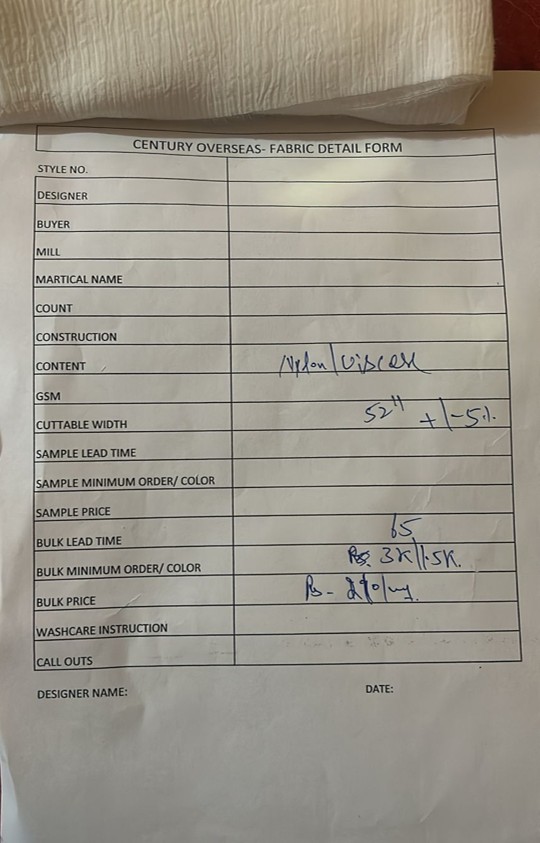 CENTURY OVERSEAS- FABRIC DETAIL FORM
STYLE NO.
DESIGNER
BUYER
MILL
MARTICAL NAME
COUNT
CONSTRUCTION
CONTENT Nylon/Viscose
GSM
CUTTABLE WIDTH 52" +/-5%
SAMPLE LEAD TIME
SAMPLE MINIMUM ORDER/ COLOR
SAMPLE PRICE
BULK LEAD TIME 65
BULK MINIMUM ORDER/ COLOR 3K/1.5K.
BULK PRICE
WASHCARE INSTRUCTION
CALL OUTS
DESIGNER NAME: DATE: